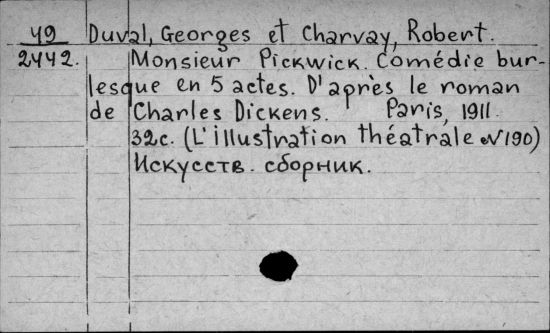 49 Duval, Georges et Charvay, Robert.
2442. Monsieur Pickwick. Comédie bur-
lesque en 5 actes. D'après le roman
de Charles Dickens. Paris, 1911.
32c. (L'illustration théatrale N190)
Искусств. сборник.